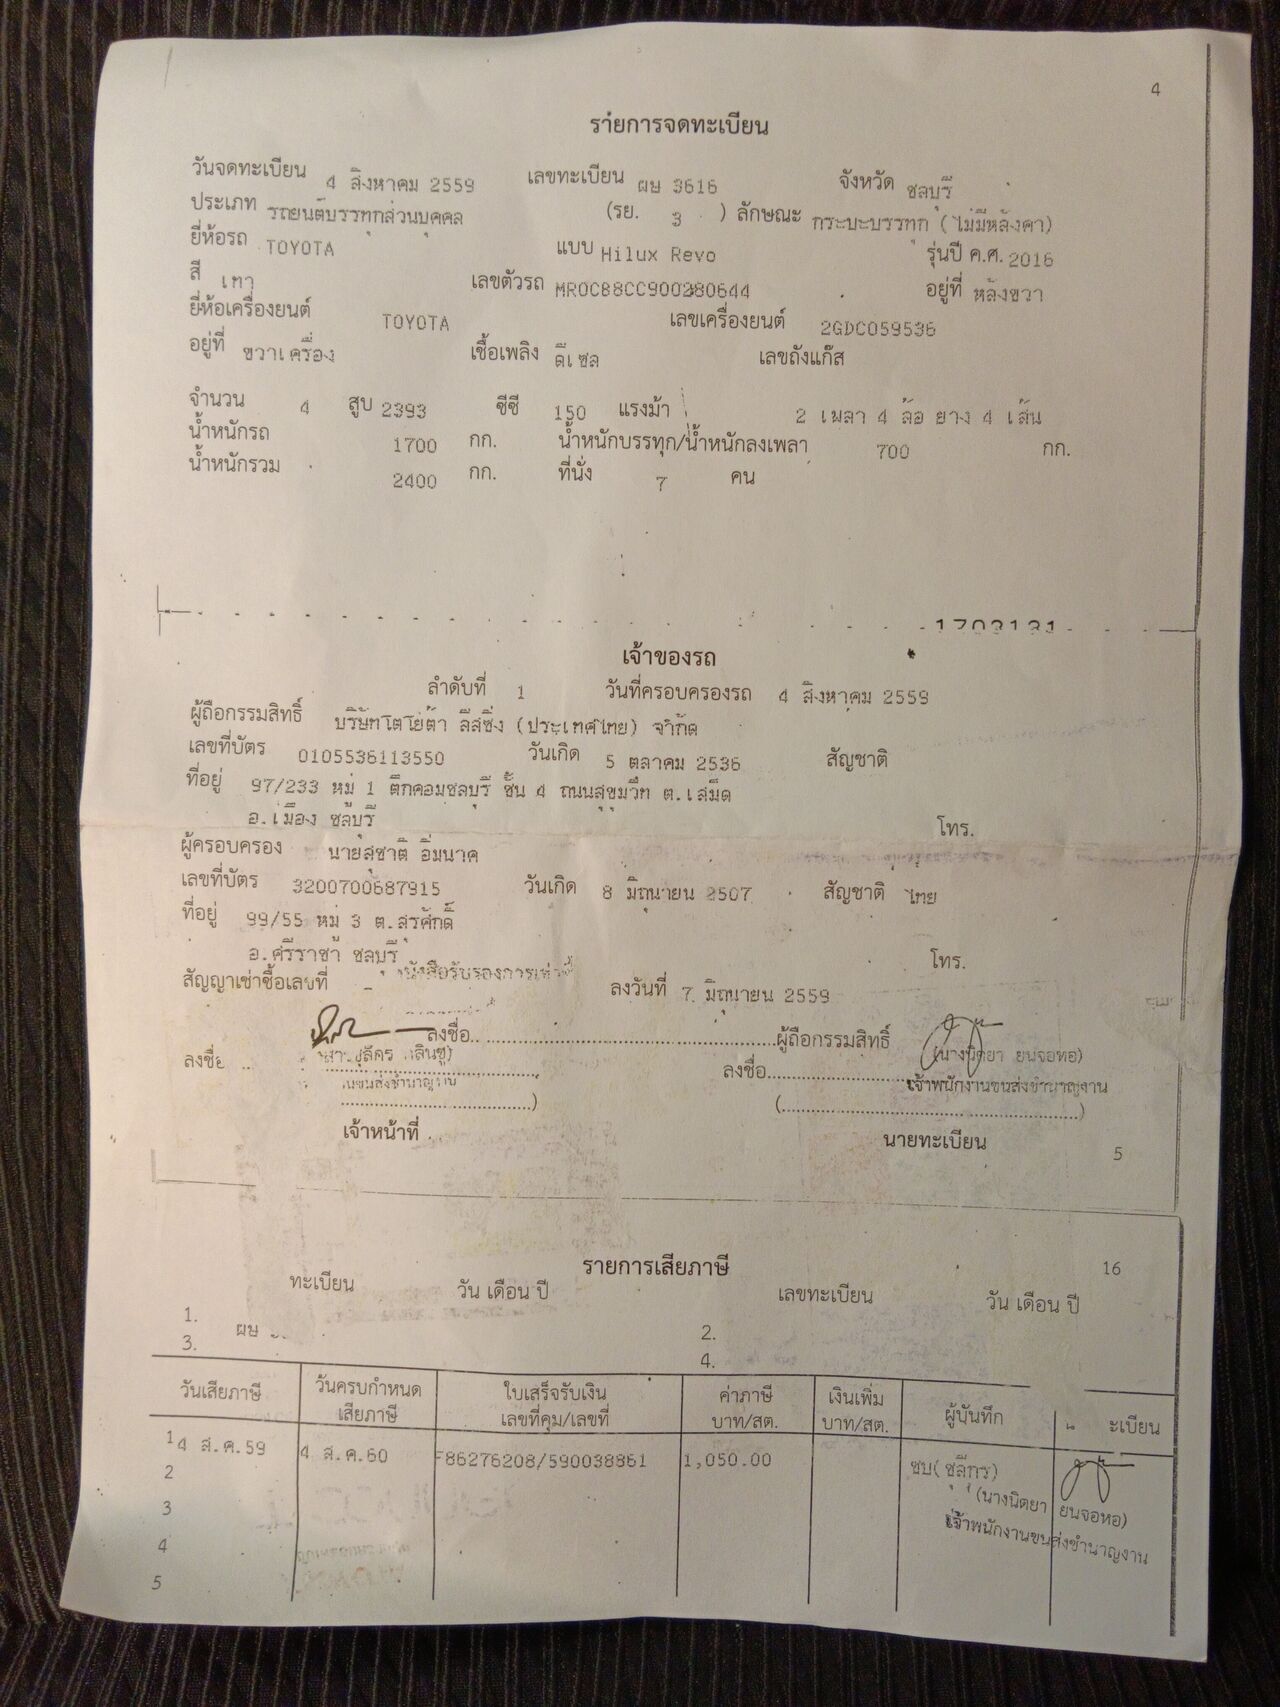 4
รายการจดทะเบียน
วันจดทะเบียน 4 สิงหาคม 2559 เลขทะเบียน ผษ 3616 จังหวัด ชลบุรี
ประเภท รถยนต์บรรทุกส่วนบุคคล (รย. 3 ) ลักษณะ กระบะบรรทุก (ไม่มีหลังคา)
ยี่ห้อรถ TOYOTA แบบ Hilux Revo รุ่นปี ค.ศ. 2016
สี เทา เลขตัวรถ MR0CB8CC900280644 อยู่ที่ หลังขวา
ยี่ห้อเครื่องยนต์ TOYOTA เลขเครื่องยนต์ 2GDC059536
อยู่ที่ ขวาเครื่อง เชื้อเพลิง ดีเซล เลขถังแก๊ส
จำนวน 4 สูบ 2393 ซีซี 150 แรงม้า 2 เพลา 4 ล้อ ยาง 4 เส้น
น้ำหนักรถ 1700 กก. น้ำหนักบรรทุก/น้ำหนักลงเพลา 700 กก.
น้ำหนักรวม 2400 กก. ที่นั่ง 7 คน
1703131
เจ้าของรถ
ลำดับที่ 1 วันที่ครอบครองรถ 4 สิงหาคม 2559
ผู้ถือกรรมสิทธิ์ บริษัทโตโยต้า ลีสซิ่ง (ประเทศไทย) จำกัด
เลขที่บัตร 0105536113550 วันเกิด 5 ตุลาคม 2536 สัญชาติ
ที่อยู่ 97/233 หมู่ 1 ตึกคอมชลบุรี ชั้น 4 ถนนสุขุมวิท ต.เสม็ด
อ.เมือง ชลบุรี โทร.
ผู้ครอบครอง นายสุชาติ อิ่มนาค
เลขที่บัตร 3200700687915 วันเกิด 8 มิถุนายน 2507 สัญชาติ ไทย
ที่อยู่ 99/55 หมู่ 3 ต.สุรศักดิ์
อ.ศรีราชา ชลบุรี โทร.
สัญญาเช่าซื้อเลขที่ หนังสือรับรองการเช่าซื้อ ลงวันที่ 7 มิถุนายน 2559
ลงชื่อ ผู้ถือกรรมสิทธิ์ (นางนิตยา ยนจอหอ)
ลงชื่อ ลงชื่อ เจ้าพนักงานขนส่งชำนาญงาน
เจ้าหน้าที่ นายทะเบียน
5
รายการเสียภาษี 16
ทะเบียน วัน เดือน ปี เลขทะเบียน วัน เดือน ปี
1. ผษ 2.
3. 4.
วันเสียภาษี วันครบกำหนดเสียภาษี ใบเสร็จรับเงิน เลขที่คุม/เลขที่ ค่าภาษี บาท/สต. เงินเพิ่ม บาท/สต. ผู้บันทึก ะเบียน
1 4 ส.ค.59 4 ส.ค.60 F86276208/590038861 1,050.00 ชบ(ชุลีกร)
2 (นางนิตยา ยนจอหอ)
3 เจ้าพนักงานขนส่งชำนาญงาน
4
5